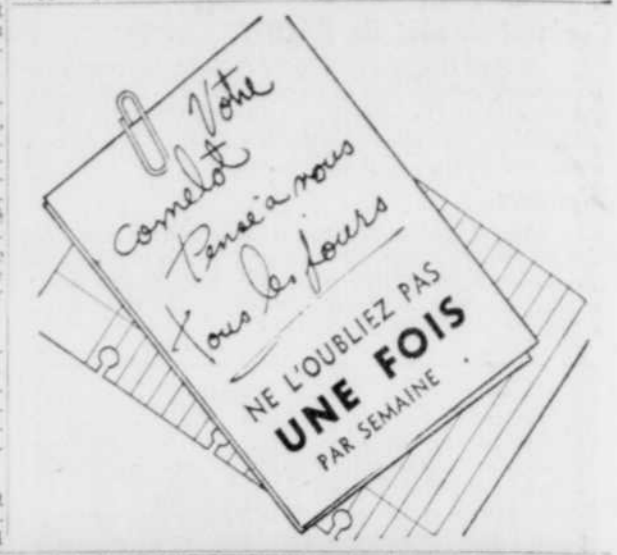 Votre
camelot
Pense à nous
tous les jours
NE L'OUBLIEZ PAS
UNE FOIS
PAR SEMAINE